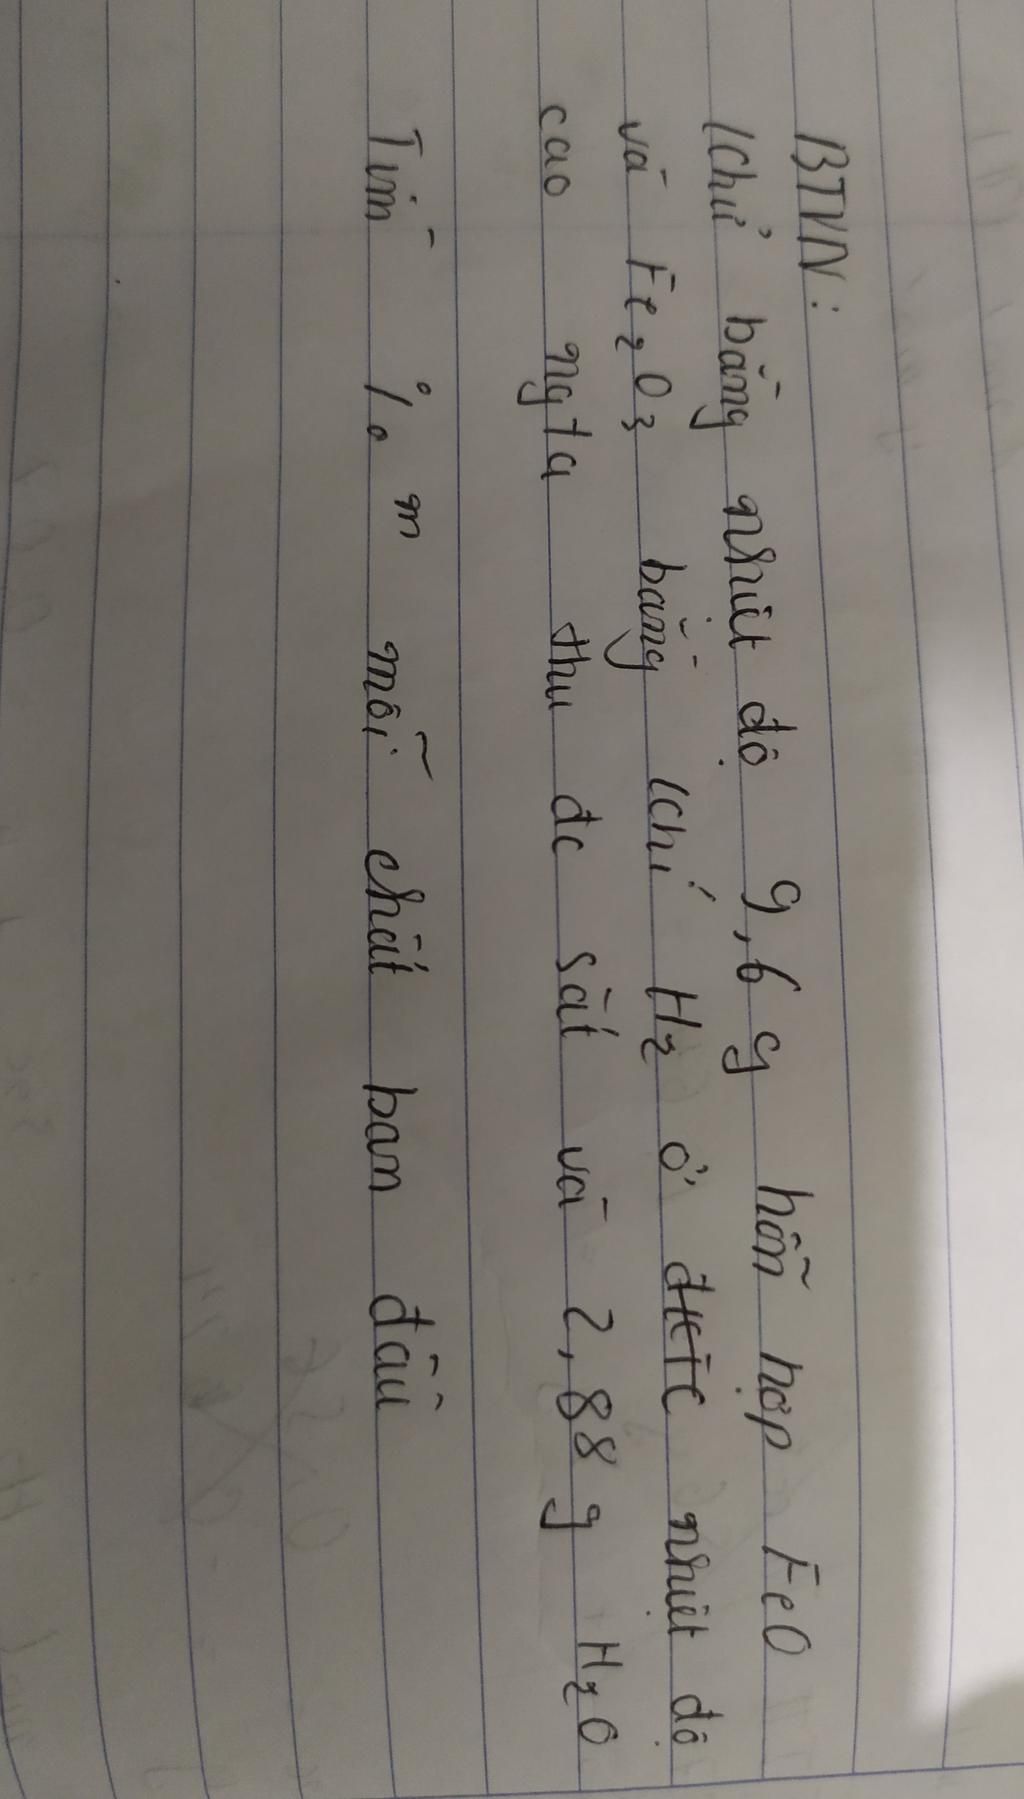 BTVN:
Khử bằng nhiệt độ 9,6 g hỗn hợp FeO
và Fe2O3 bằng khí H2 ở đktc nhiệt độ
cao ngta thu đc sắt và 2,88 g H2O
Tính % m mỗi chất ban đầu